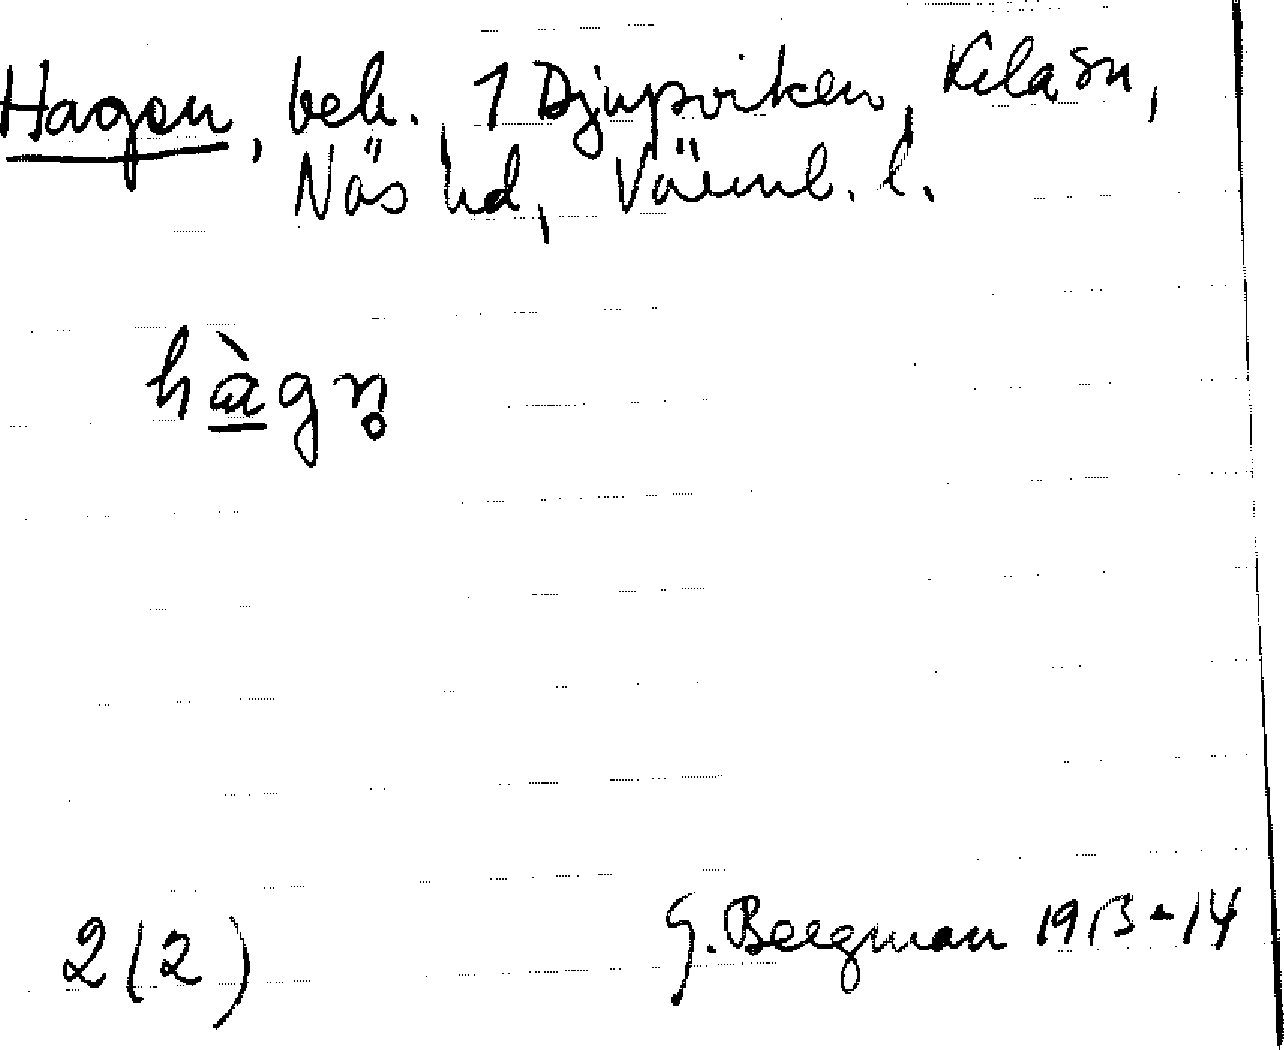 Hagen, beb. 1 Djupviken, Kila sn,
Näs hd, Värml. l.
hàgn̥
2(2)
G. Bergman 1913-14